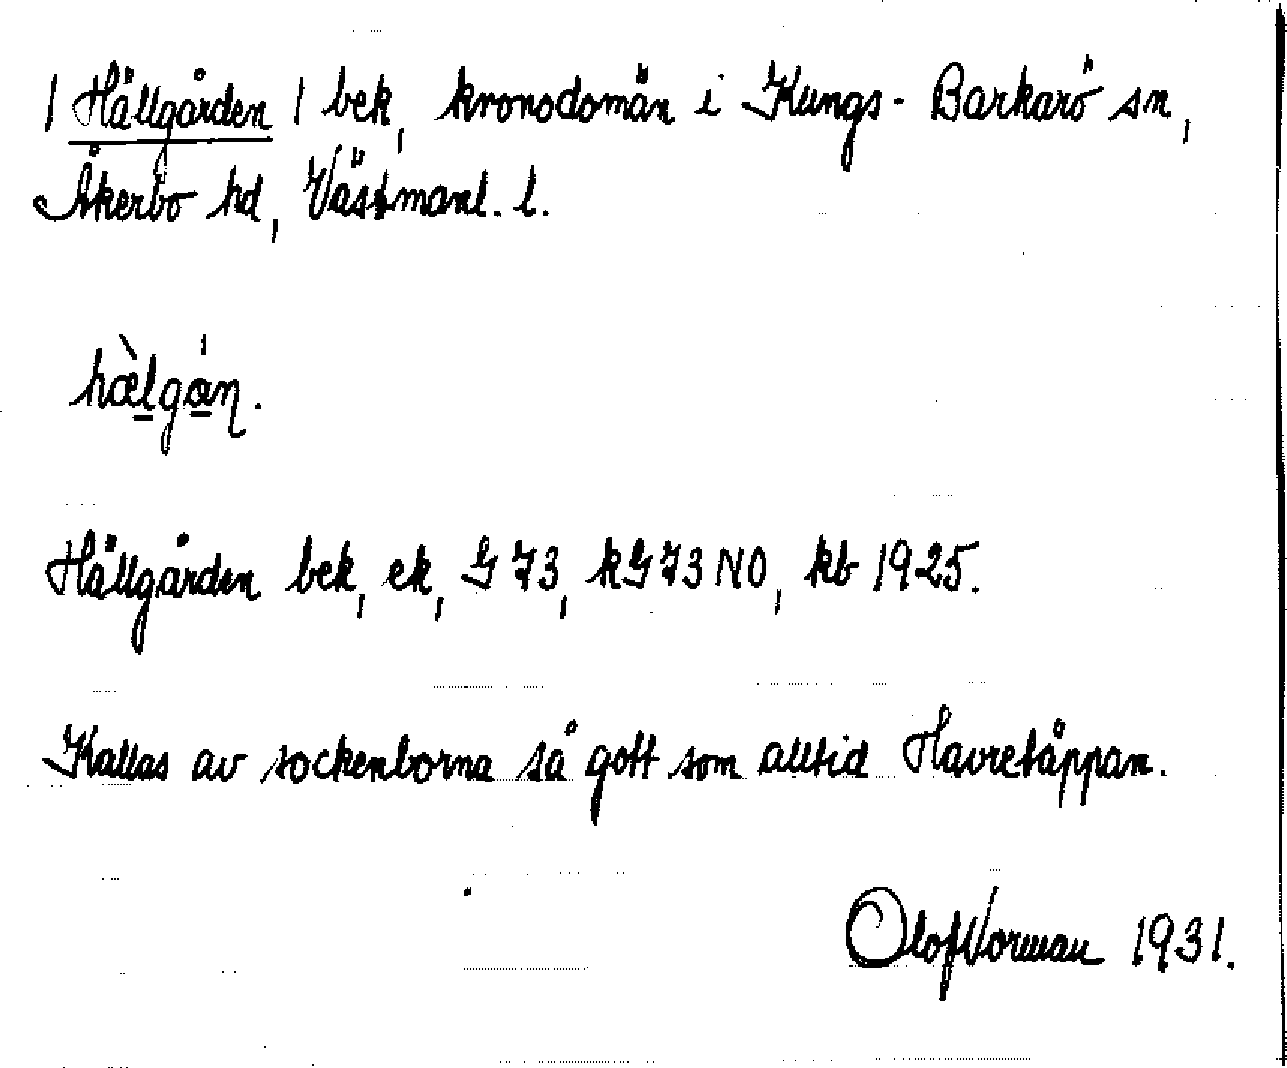 | Hällgården | bek, kronodomän i Kungs-Barkarö sn,
Åkerbo hd, Västmanl. l.
hæ̀lgɑ́ɳ.
Hällgården bek, ek, G 73, kG73NO, kb 1925.
Kallas av sockenborna så gott som alltid Havretäppan.
Olof Vorman 1931.